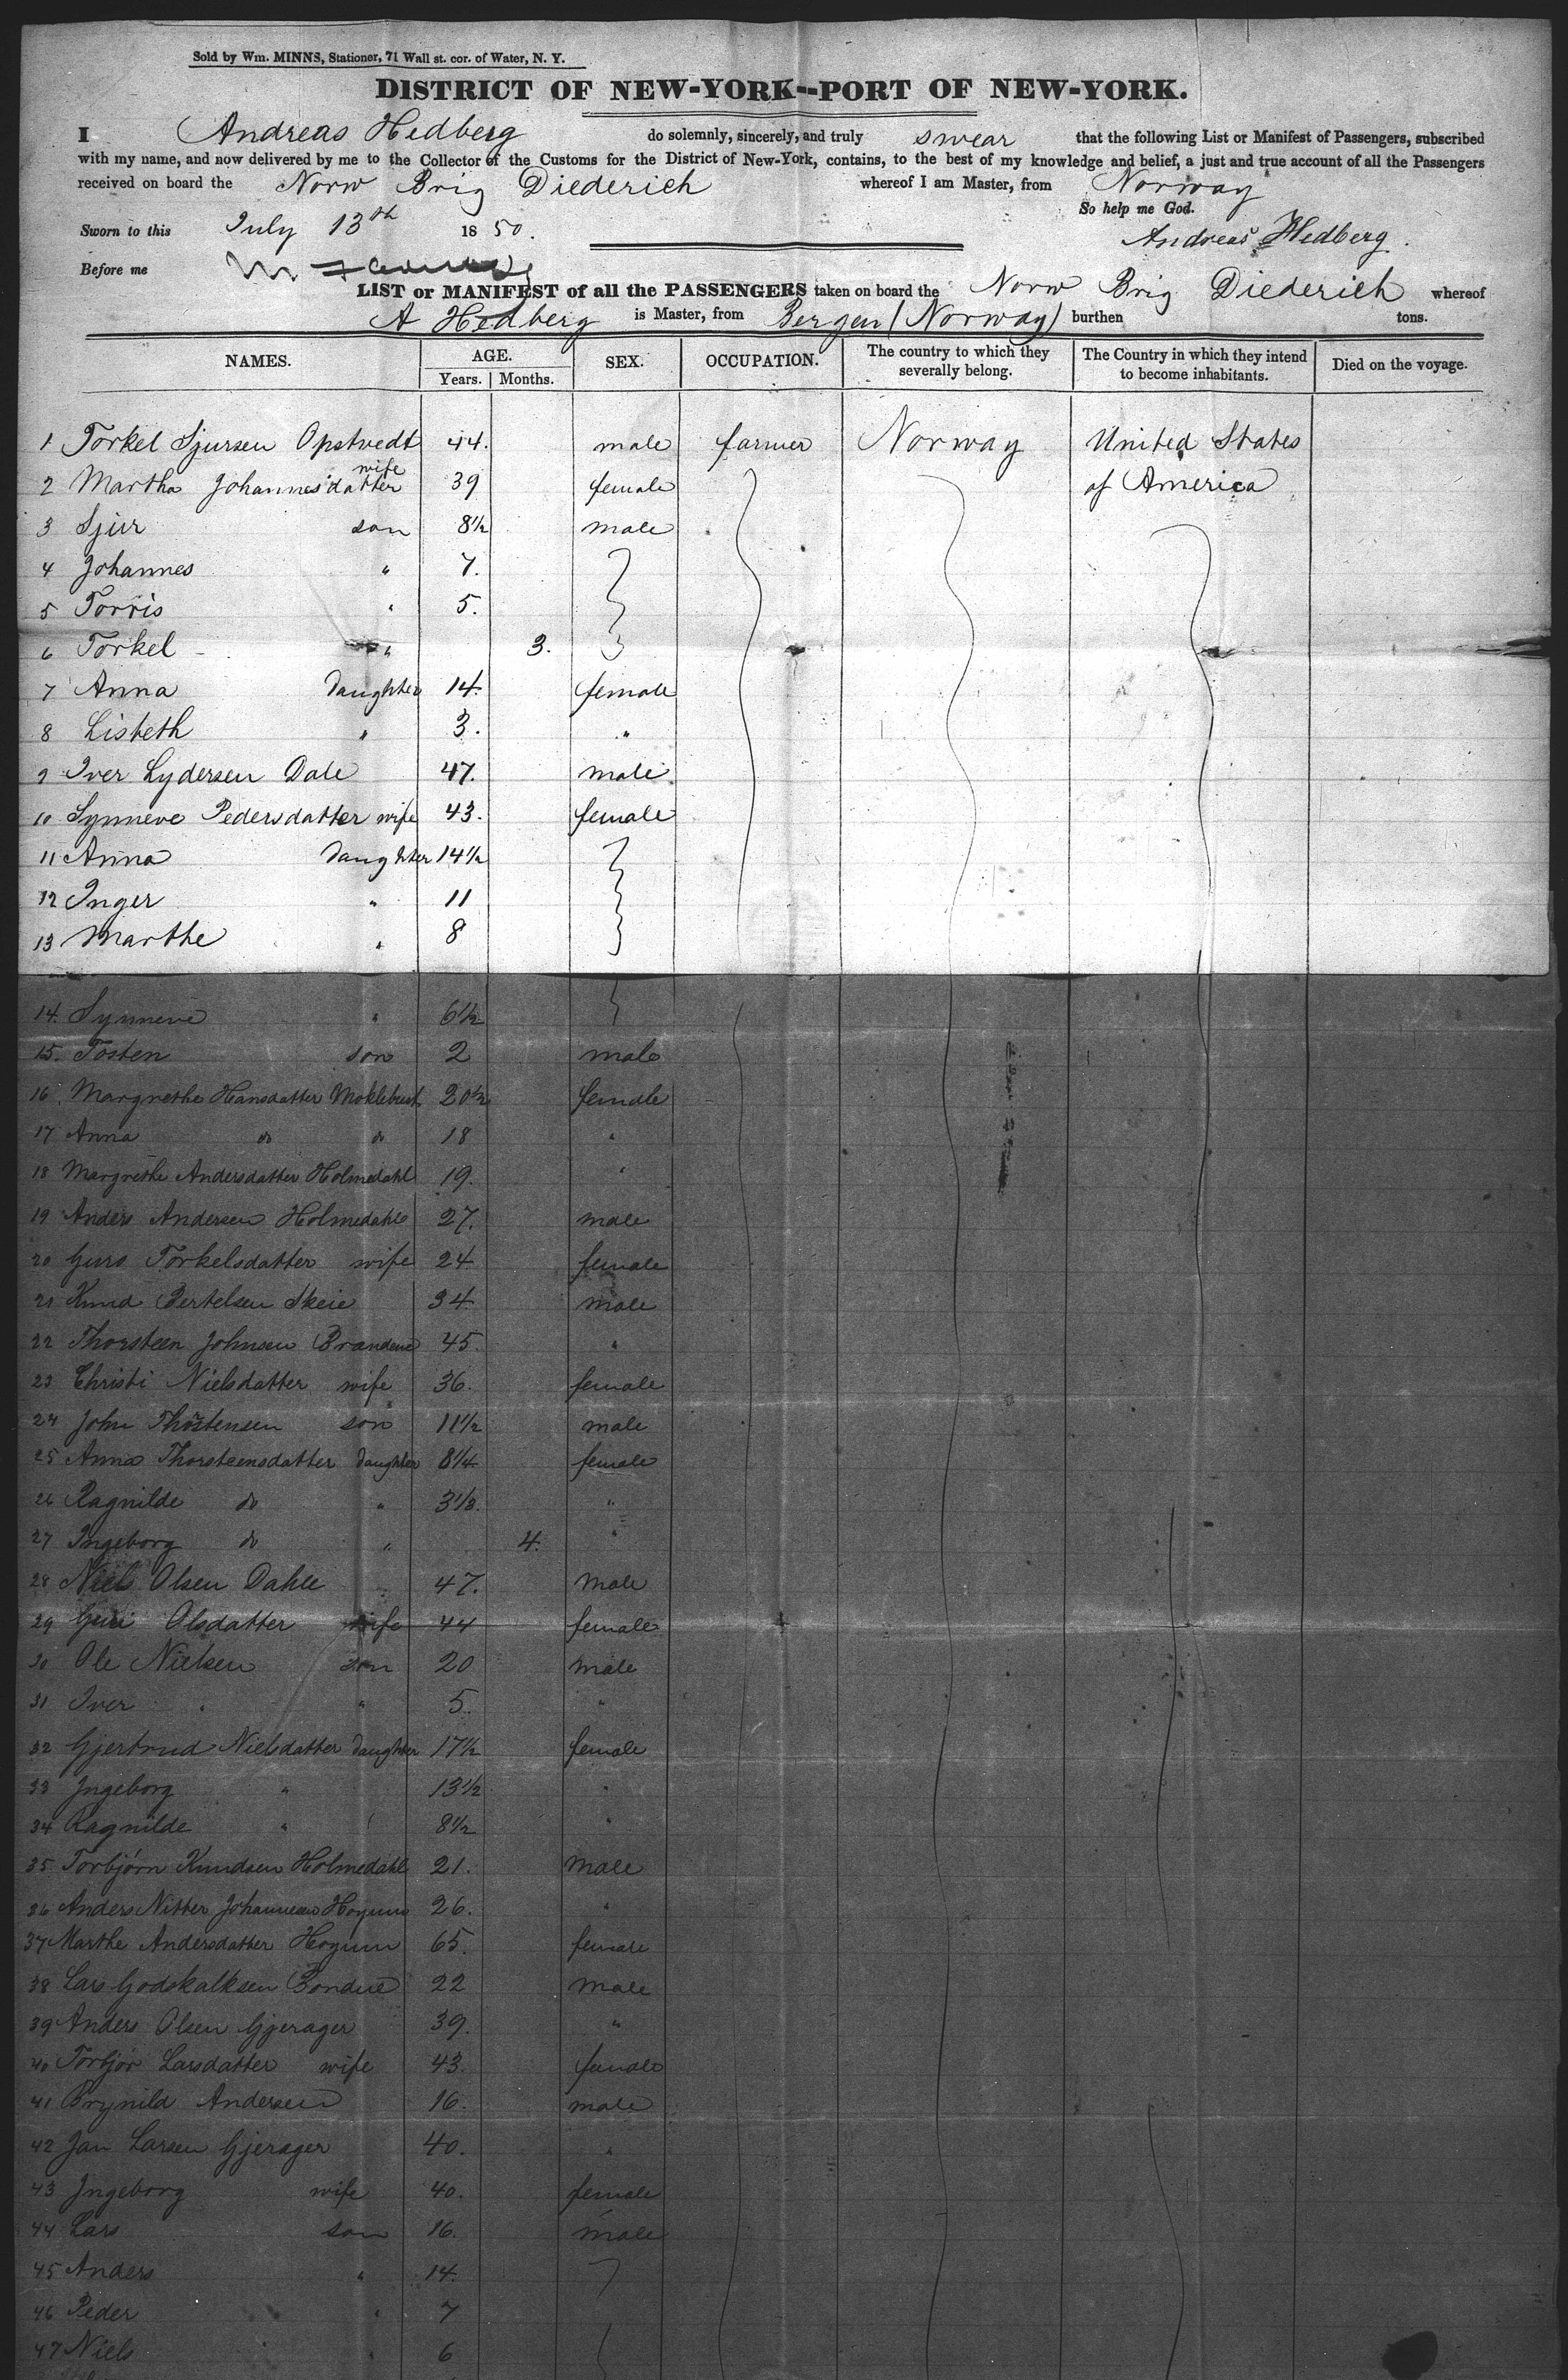 Sold by Wm. MINNS, Stationer, 71 Wall st. cor. of Water, N. Y.
DISTRICT OF NEW-YORK--PORT OF NEW-YORK.
I Andreas Hedberg do solemnly, sincerely, and truly swear that the following List or Manifest of Passengers, subscribed
with my name, and now delivered by me to the Collector of the Customs for the District of New-York, contains, to the best of my knowledge and belief, a just and true account of all the Passengers
received on board the Norw Brig Diederich whereof I am Master, from Norway
So help me God.
Sworn to this July 13th 1850. Andreas Hedberg.
Before me
LIST or MANIFEST of all the PASSENGERS taken on board the Norw Brig Diederich whereof
A Hedberg is Master, from Bergen (Norway) burthen tons.
NAMES. AGE. SEX. OCCUPATION. The country to which they severally belong. The Country in which they intend to become inhabitants. Died on the voyage.
Years. Months.
1 Torkel Sjursen Opstvedt 44. male farmer Norway United States
2 Martha Johannesdatter wife 39 female of America
3 Sjur son 8½ male
4 Johannes " 7.
5 Torris " 5.
6 Torkel " 3.
7 Anna daughter 14. female
8 Lisbeth " 3. "
9 Iver Lydersen Dale 47. male
10 Synneve Pedersdatter wife 43. female
11 Anna daughter 14½
12 Inger " 11
13 Marthe " 8
14. Synneve " 6½
15. Tosten son 2 male
16. Margrethe Hansdatter Moklebust 20½ female
17 Anna do do 18 "
18 Margrethe Andersdatter Holmedahl 19. "
19 Anders Andersen Holmedahl 27. male
20 Guro Torkelsdatter wife 24 female
21 Knud Bertelsen Skeie 34 male
22 Thorsteen Johnsen 45. "
23 Christi Nielsdatter wife 36. female
24 John Thostensen son 11½ male
25 Anna Thorsteensdatter daughter 8¼ female
26 Ragnilde do " 3½. "
27 Ingeborg do " 4. "
28 Niels Olsen Dahle 47. male
29 Guri Olsdatter wife 44 female
30 Ole Nielsen son 20 male
31 Iver " " 5. "
32 Gjertrud Nielsdatter daughter 17½ female
33 Ingeborg " 13½ "
34 Ragnilde " 8½ "
35 Torbjørn Knudsen Holmedahl 21. male
36 Anders Nitter Johannesen 26. "
37 Marthe Andersdatter 65. female
38 Lars Godskalksen 22 male
39 Anders Olsen Gjerager 39. "
40 Torbjør Larsdatter wife 43. female
41 Brynild Andersen 16. male
42 Jan Larsen Gjerager 40. "
43 Ingeborg wife 40. female
44 Lars son 16. male
45 Anders " 14.
46 Peder " 7
47 Niels " 6